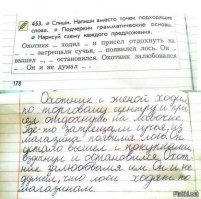 453. Спиши. Напиши вместо точек подходящие
слова. • Подчеркни грамматические основы.
• Нарисуй схему каждого предложения.
Охотник .. ходил .. и присел отдохнуть на
.. .. затрещали сучья, .. появился лось. Он ..
вышел .., .. остановился. Охотник залюбовался
.. . Он и не думал .. .
178
Охотник с женой ходил
по торговому центру и при
сел отдохнуть на лавочке
Где-то затрещали сучья, из
магазина появился лось. Он
устало вышел и
и остановился. Охот
ник залюбовался им. Он и не
думал, что лоси ходят по
магазинам.